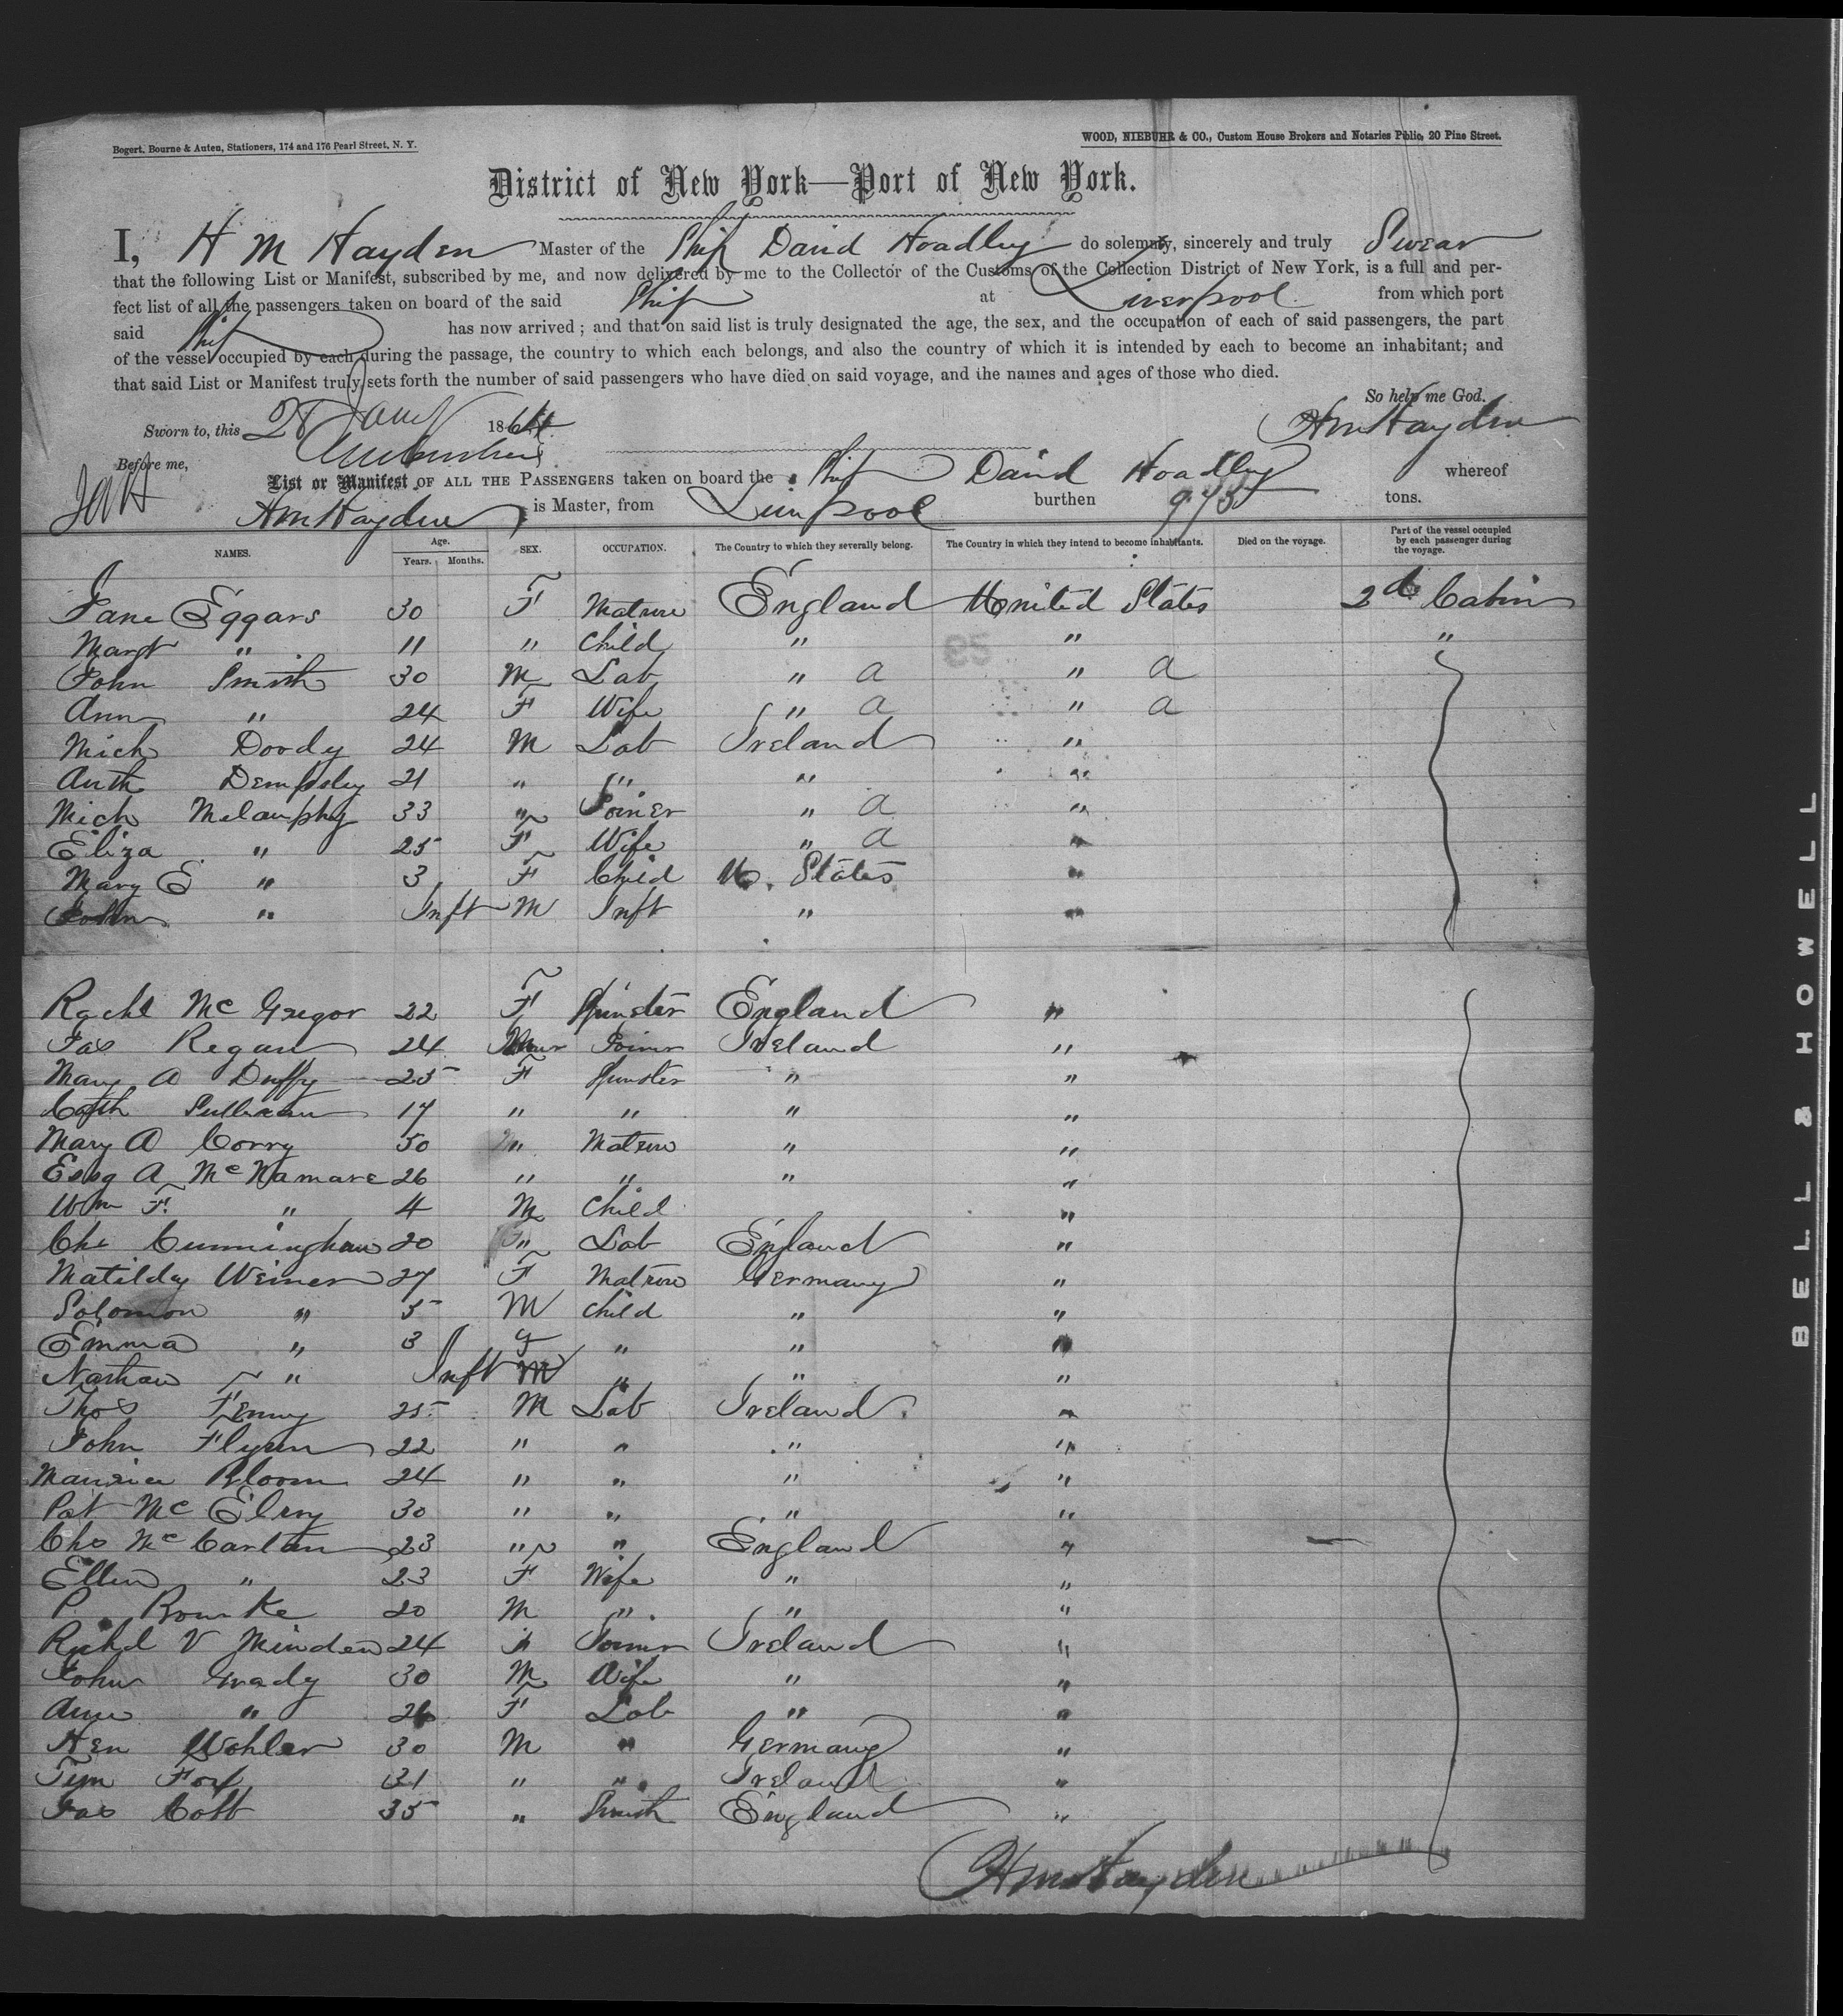 Bogert, Bourne & Auten, Stationers, 174 and 176 Pearl Street, N. Y.
WOOD, NIEBUHR & CO., Custom House Brokers and Notaries Public, 20 Pine Street.
District of New York—Port of New York.
I, H M Hayden Master of the Ship David Hoadley do solemnly, sincerely and truly Swear
that the following List or Manifest, subscribed by me, and now delivered by me to the Collector of the Customs of the Collection District of New York, is a full and per-
fect list of all the passengers taken on board of the said Ship at Liverpool from which port
said Ship has now arrived; and that on said list is truly designated the age, the sex, and the occupation of each of said passengers, the part
of the vessel occupied by each during the passage, the country to which each belongs, and also the country of which it is intended by each to become an inhabitant; and
that said List or Manifest truly sets forth the number of said passengers who have died on said voyage, and the names and ages of those who died.
So help me God.
Sworn to, this 28 186 HM Hayden
Before me,
List or Manifest OF ALL THE PASSENGERS taken on board the Ship David Hoadley whereof
HM Hayden is Master, from Liverpool burthen 973 tons.
NAMES. Age. Years. Months. SEX. OCCUPATION. The Country to which they severally belong. The Country in which they intend to become inhabitants. Died on the voyage. Part of the vessel occupied by each passenger during the voyage.
Jane Eggars 30 F Matron England United States 2d Cabin
Margt " 11 " Child " " "
John Smith 30 M Lab " a " a
Ann " 24 F Wife " a " a
Mich Doody 24 M Lab Ireland "
Auth Dempsley 21 " " " "
Mich Melamphy 33 " Joiner " a "
Eliza " 25 F Wife " a "
Mary E " 3 F Child U. States "
John " Inft M Inft " "
Rachl McGregor 22 F Spinster England "
Jas Regan 24 Joiner Ireland "
Mary A Duffy 25 F Spinster " "
Cath Sullivan 17 " " " "
Mary A Corry 50 " Matron " "
A McNamara 26 " " " "
Wm F. " 4 M Child "
Chs Cunningham 20 " Lab England "
Matilda Weiner 27 F Matron Germany "
Solomon " 5 M Child " "
Emma " 3 F " " "
Nathan " Inft M " " "
Thos Fenny 25 M Lab Ireland "
John Flynn 22 " " " "
Maurice Bloom 24 " " " "
Pat McElroy 30 " " " "
Chs McCartan 23 " " England "
Ellen " 23 F Wife " "
P. Rourke 20 M " " "
Richd V Minden 24 " Joiner Ireland "
John Grady 30 M Wife " "
Ann " 26 F Lab " "
Hen Wohler 30 M " Germany "
Tim Fox 31 " " Ireland "
Jas Cobb 35 " Smith England "
HM Hayden
BELL & HOWELL